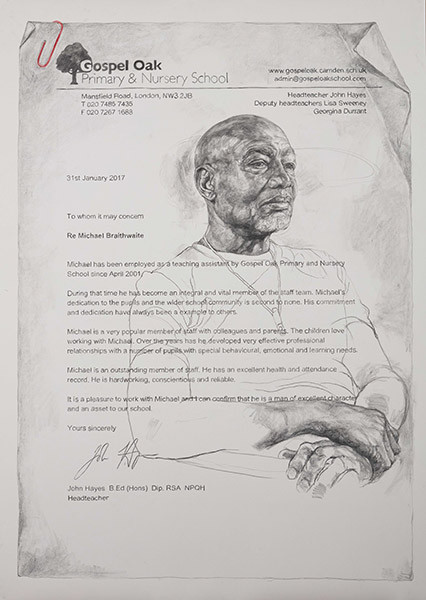 Gospel Oak
Primary & Nursery School
www.gospeloak.camden.sch.uk
admin@gospeloakschool.com
Mansfield Road, London, NW3 2JB
T 020 7485 7435
F 020 7267 1683
Headteacher John Hayes
Deputy headteachers Lisa Sweeney
Georgina Durrant
31st January 2017
To whom it may concern
Re Michael Braithwaite
Michael has been employed as a teaching assistant by Gospel Oak Primary and Nursery
School since April 2001.
During that time he has become an integral and vital member of the staff team. Michael's
dedication to the pupils and the wider school community is second to none. His commitment
and dedication have always been a example to others.
Michael is a very popular member of staff with colleagues and parents. The children love
working with Michael. Over the years has he developed very effective professional
relationships with a number of pupils with special behavioural, emotional and learning needs.
Michael is an outstanding member of staff. He has an excellent health and attendance
record. He is hardworking, conscientious and reliable.
It is a pleasure to work with Michael and I can confirm that he is a man of excellent character
and an asset to our school.
Yours sincerely
John Hayes B.Ed (Hons) Dip. RSA NPQH
Headteacher